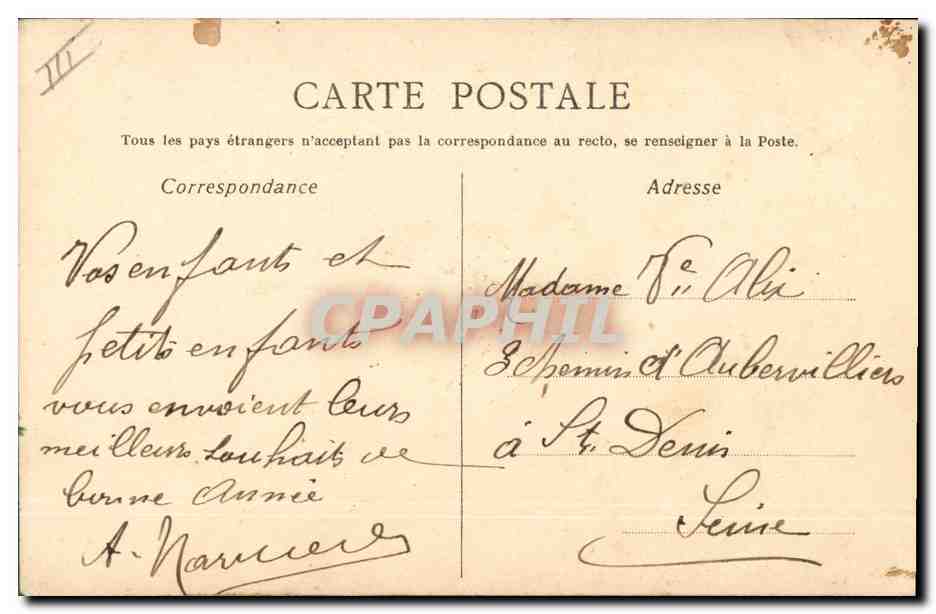 III
CARTE POSTALE
Tous les pays étrangers n'acceptent pas la correspondance au recto, se renseigner à la Poste.
Correspondance
Vos enfants et
petits enfants
vous envoient leurs
meilleurs souhaits de
bonne Année
A.
Adresse
Madame Vve Alix
3 chemin d'Aubervilliers
à St. Denis
Seine
CPAPHIL